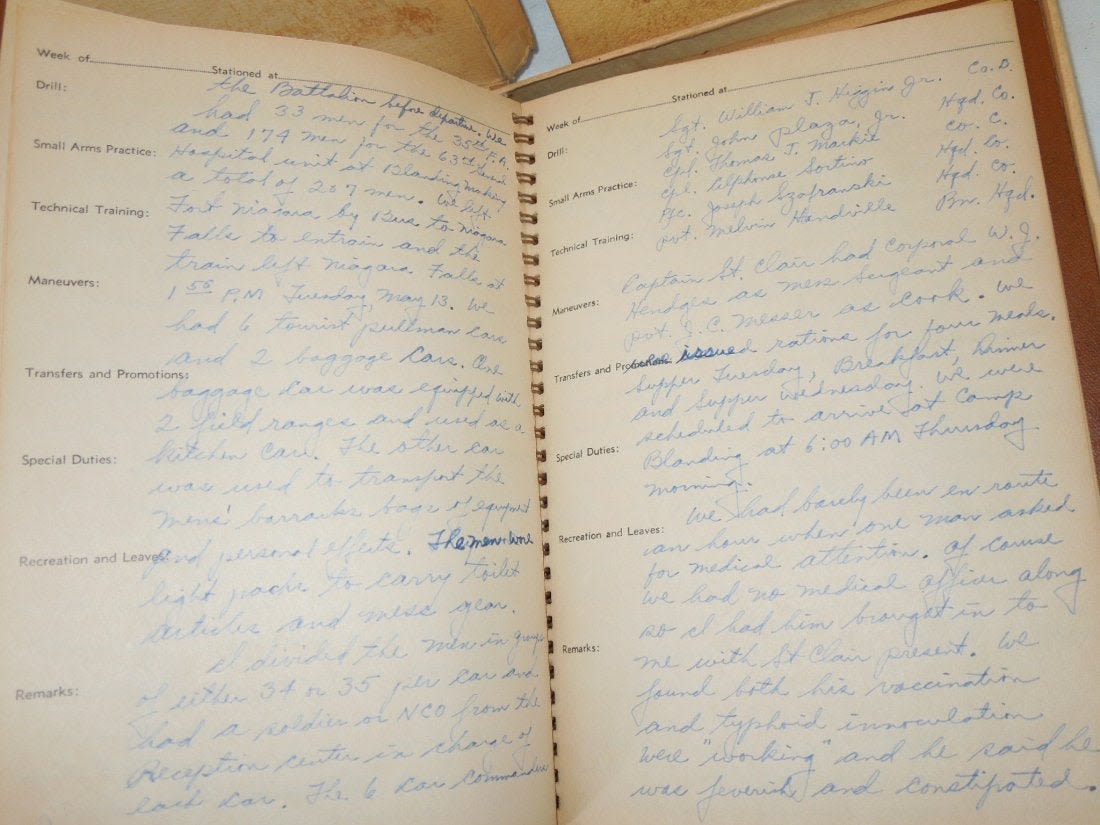 Week of Stationed at
Drill: the Battalion before departure. We
had 33 men for the 35th F.A.
and 174 men for the 63rd
Small Arms Practice: Hospital unit at Blanding making
a total of 207 men. We left
Technical Training: Fort Niagara by Bus to Niagara
Falls to entrain and the
train left Niagara Falls at
Maneuvers: 1 56 P.M Tuesday, May 13. We
had 6 tourist pullman cars
and 2 baggage cars. One
Transfers and Promotions: baggage car was equipped with
2 field ranges and used as a
Special Duties: kitchen car. The other car
was used to transport the
mens' barracks bags of equipment
Recreation and Leaves: and personal effects. The men wore
light packs to carry toilet
articles and mess gear.
I divided the men in groups
Remarks: of either 34 or 35 per car and
had a soldier or NCO from the
Reception center in charge of
each car. The 6 car commanders
Week of Stationed at
Sgt. William J. Higgin Jr. Co. D.
Drill: Sgt. John Plaza, Jr. Hqd. Co.
Cpl. Thomas J. Markie Co. C.
Small Arms Practice: Cpl. Alphonse Sortino Hqd. Co.
Pfc. Joseph Szafranski Hqd. Co.
Technical Training: Pvt. Melvin Handville Bn. Hqd.
Captain St. Clair had Corporal W. J.
Maneuvers: Hendges as mess Sergeant and
Pvt. J. C. Messer as cook. We
Transfers and Promotions: issued rations for four meals.
Supper Tuesday, Breakfast, Dinner
and Supper Wednesday. We were
scheduled to arrive at Camp
Special Duties: Blanding at 6:00 AM Thursday
morning.
We had barely been en route
Recreation and Leaves: an hour when one man asked
for medical attention. Of course
we had no medical officer along
so I had him brought in to
Remarks: me with St Clair present. We
found both his vaccination
and typhoid innoculation
were "working" and he said he
was feverish and constipated.